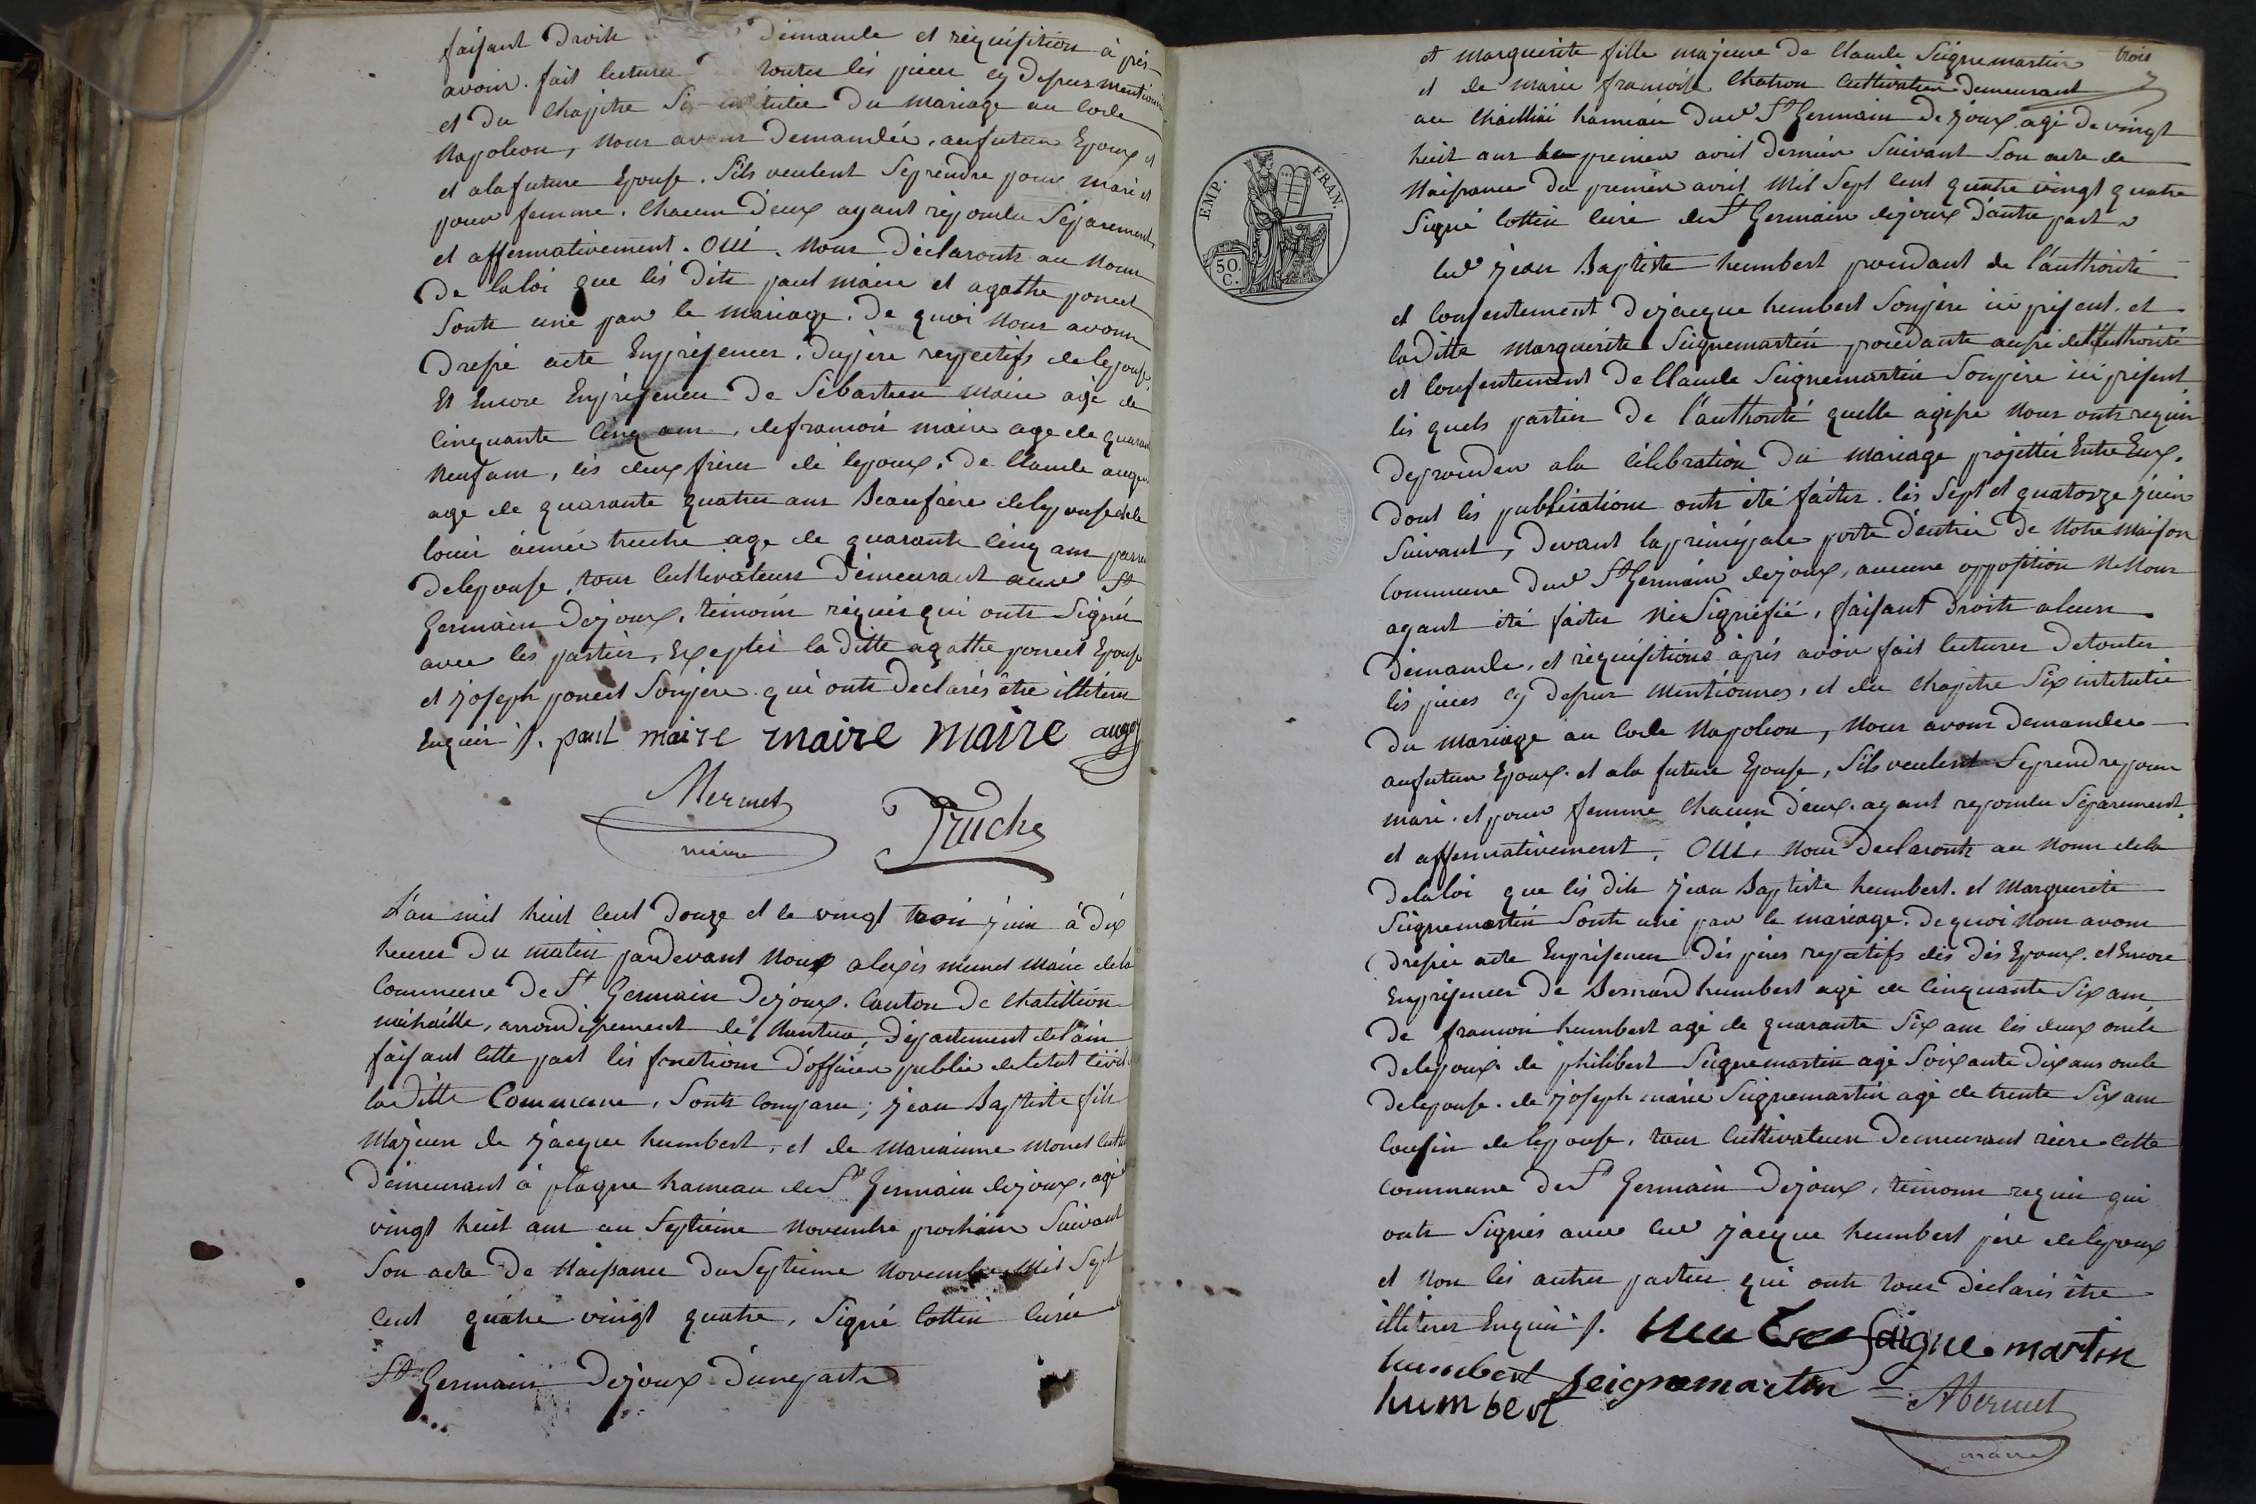 faisant droit demande et requisition à près
avoir fait lectures toutes lés pieces cy dessus mentionn
et du Chapitre Six intitulée du mariage au Code
Napoleon, nous avons demandée, aufuture Epoux et
et alafuture Epouse. Sils veulent Seprendre pour mari et
pour femme. Chacun d'eux ayant repondu Séparement
et affermativement. Oui. Nous déclaronts au Nom
De laloi que lés dits paul maire et agathe poncet
Sonts unie par le mariage. De quoi nous avons
Dressé acte Enprésences. Dupère respectifs delepouse
Et Encore Enprésence de Sébastien maire agé de
Cinquante Cinq ans, defrancois maire age de quarant
neuf ans, lés deux frères de lepoux, de Claude auger
age de quarante quatre ans Beaufrère delepouse dele
louis aimée truche age de quarante Cinq ans
delepouse, tous Cultivateurs demeurant St
Germain Dejoux, témoins réquis qui onts Signés
avec les parties, Exeptés la ditte agathe poncet Epouse
et joseph poncet Sonpère qui onts declarés être illitérés
Enquis f. paul maire maire maire auger
Mermet
maire Truche
L'an mil huit Cent Douze et le vingt trois juin à dix
heures du matin pardevant Nous alexis mermet Maire dela
Commune de St Germain dejoux. Canton de Chatillion
michaille, arrondissement de Nantua, département delain
faisant Cette part lés fonctions d'officier public deletat Civil
laditte Commune, Sonts Comparu; jean Baptiste fils
Majeur de jacque humbert, et de Marianne Monet
Demeurant à plagne hameau de St Germain dejoux, agé
vingt huit ans au Septieme Novembre prochain Suivant
Son acte de Naissance du Septieme Novembre Mil Sept
Cent quatre vingt quatre, Signé Cottin Curée
St Germain Dejoux d'unepart
trois
et marguerite fille majeure de Claude Seignemartin
et de marie francoise Chatron Cultivateur demeurant
au hameau dud St Germain de joux agé de vingt
huit ans le premier avril dernier Suivant Son acte de
Naissance du premier avril Mil Sept Cent quatre vingt quatre
Signé Cottin Curé de St Germain dejoux d'autre part
led jean Baptiste humbert procedant de l'authorité
et Consentement dejacque humbert Sonpère ici présent. et
laditte Marguerite Seignemartin procedante aussi de l'authorité
et Consentement de Claude Seignemartin Sonpère ici présent
lés quels parties de l'authorité quelle agisse nous onts requis
deproceder ala célébration du mariage projettée Entre Eux,
dont lés publications onts été faites lés Sept et quatorze juin
Suivant, devant laprincipale porte d'entrée de Notre maison
Commune dud St Germain dejoux, aucune opposition Nenous
ayant été faites Ni Signifié, faisant droits aleurs
demande, et réquisitions àprès avoir fait lectures detoutes
lés pieces cy dessus mentionnes, et du Chapitre Six intitulée
du mariage au Code Napoleon, nous avons demandée
aufuture Epoux et ala future Epouse, Sils veulent Seprendre pour
mari et pour femme Chacun deux ayant repondu Séparement
et affermativement, Oui, Nous declaronts au Nom dela
delaloi que lés dits jean Baptiste humbert et Marguerite
Seignemartin Sonts unie par le mariage, de quoi nous avons
dressée acte Enprésences des pères respectifs dés dés Epoux. et Encore
Enprésences de Bernard humbert agé de Cinquante Six ans
de francois humbert agé de quarante Six ans lés deux oncle
delepoux de philibert Seignemartin agé Soixante dix ans oncle
delepouse. de joseph marie Seignemartin agé de trente Six ans
Cousin de lepouse, tous Cultivateurs demeurant riere Cette
Commune de St Germain Dejoux, témoins requis qui
onts Signés avec led jacque humbert pére delepoux
et Non lés autres parties qui onts tous declarés être
illitéres Enquis f. Saigne martin
humbert Seignemartin Mermet
humbert maire
EMP. FRAN.
50. C.